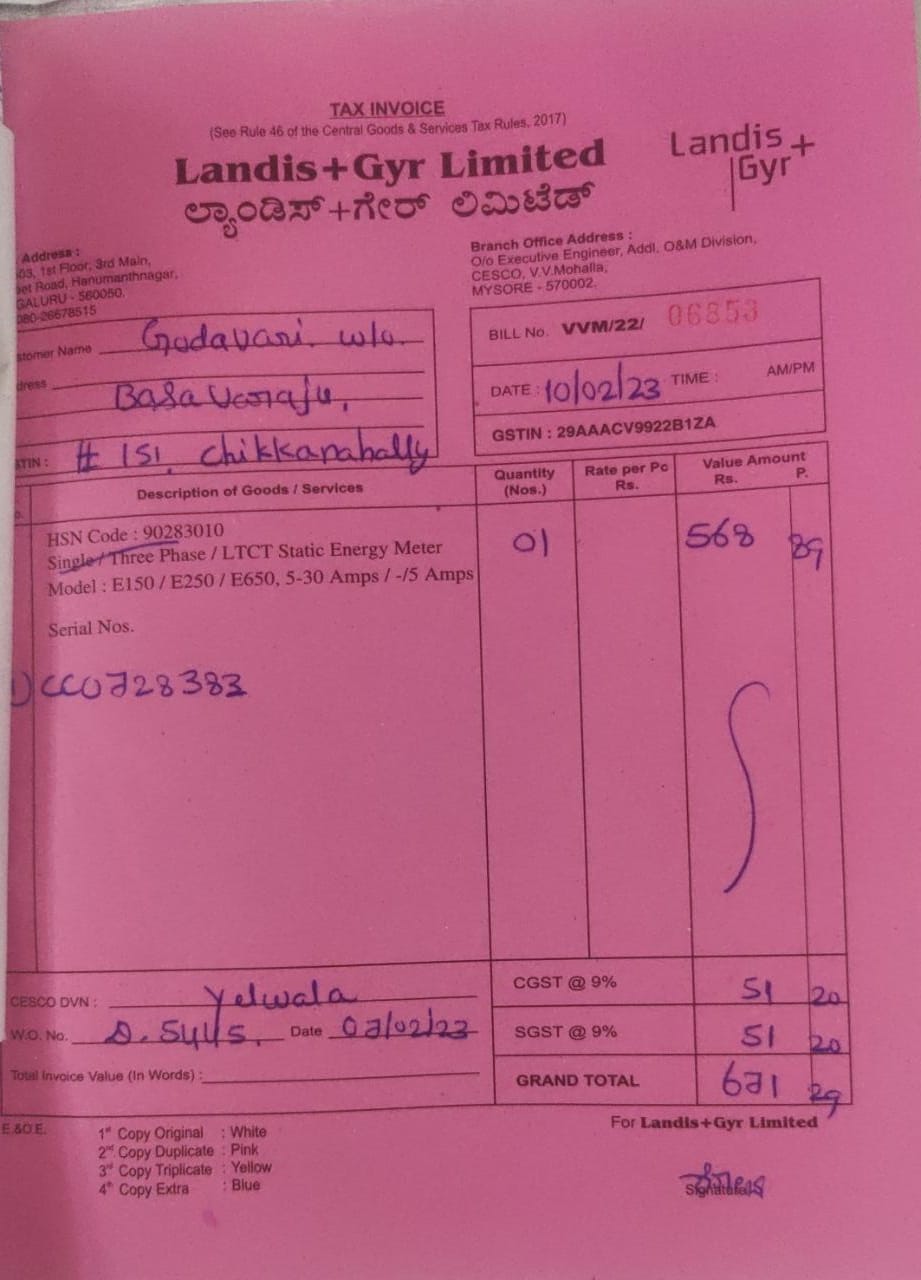 TAX INVOICE
(See Rule 46 of the Central Goods & Services Tax Rules, 2017)
Landis+Gyr Limited
ಲ್ಯಾಂಡಿಸ್+ಗೇರ್ ಲಿಮಿಟೆಡ್
Landis
Gyr+
Address :
03, 1st Floor, 3rd Main,
et Road, Hanumanthnagar,
GALURU - 560050.
080-26678515
Branch Office Address :
O/o Executive Engineer, Addl. O&M Division,
CESCO, V.V.Mohalla,
MYSORE - 570002.
stomer Name Godavari. w/o.
dress Basavaraju,
STIN : # 151, Chikkanahally
BILL No. VVM/22/ 06853
DATE : 10/02/23 TIME : AM/PM
GSTIN : 29AAACV9922B1ZA
o. Description of Goods / Services Quantity (Nos.) Rate per Pc Rs. Value Amount Rs. P.
HSN Code : 90283010 01 568 89
Single / Three Phase / LTCT Static Energy Meter
Model : E150 / E250 / E650, 5-30 Amps / -/5 Amps
Serial Nos.
1) CC0728383
CESCO DVN : Yelwala
W.O. No. D. 5445. Date 07/02/23
Total Invoice Value (In Words) :
CGST @ 9% 51 20
SGST @ 9% 51 20
GRAND TOTAL 671 29
E.&O.E.
1st Copy Original : White
2nd Copy Duplicate : Pink
3rd Copy Triplicate : Yellow
4th Copy Extra : Blue
For Landis+Gyr Limited
Signature